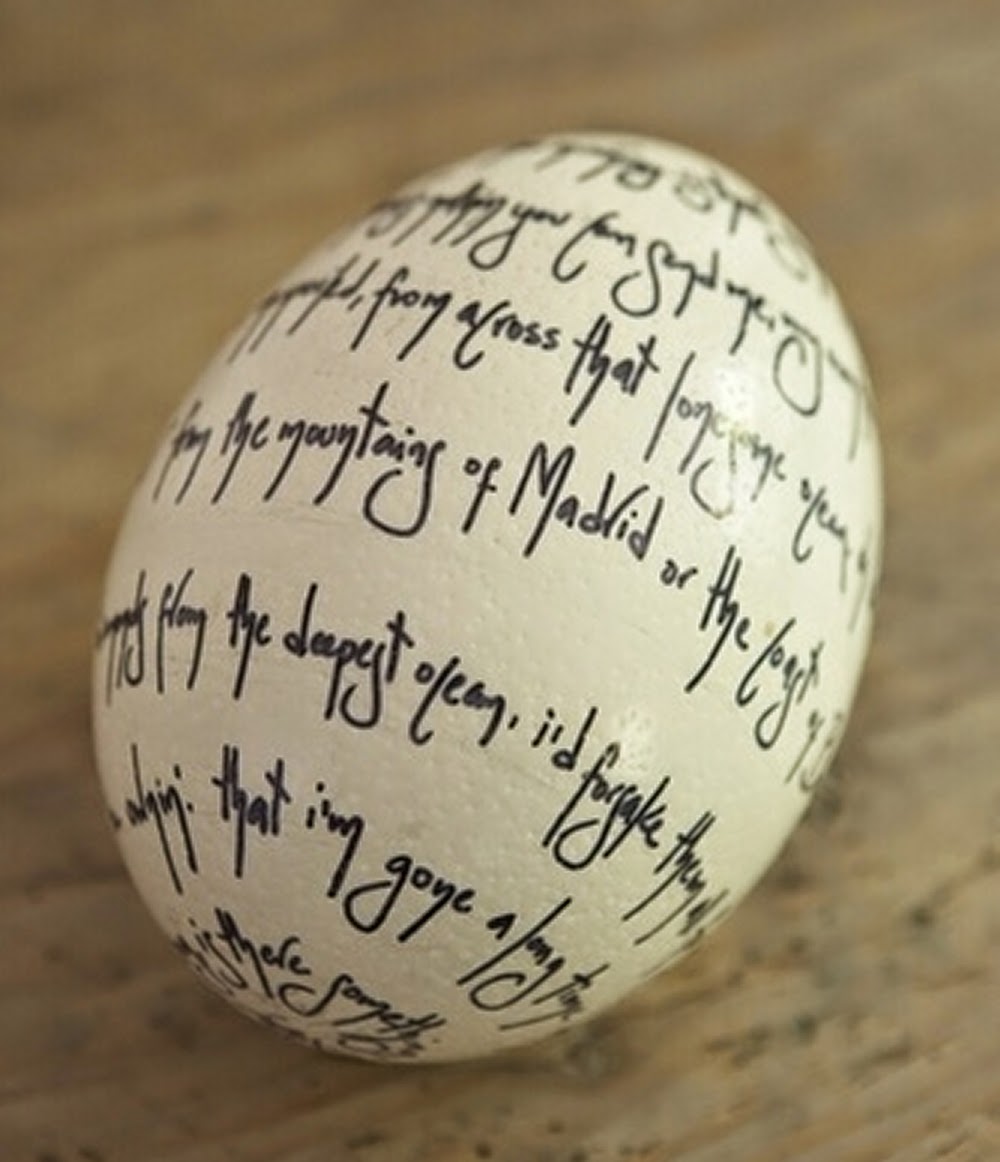 you can send me, my
from across that lonesome ocean,
from the mountains of Madrid or the coast of
from the deepest ocean, i'd forsake them
that i'm gone a long time
is there someth